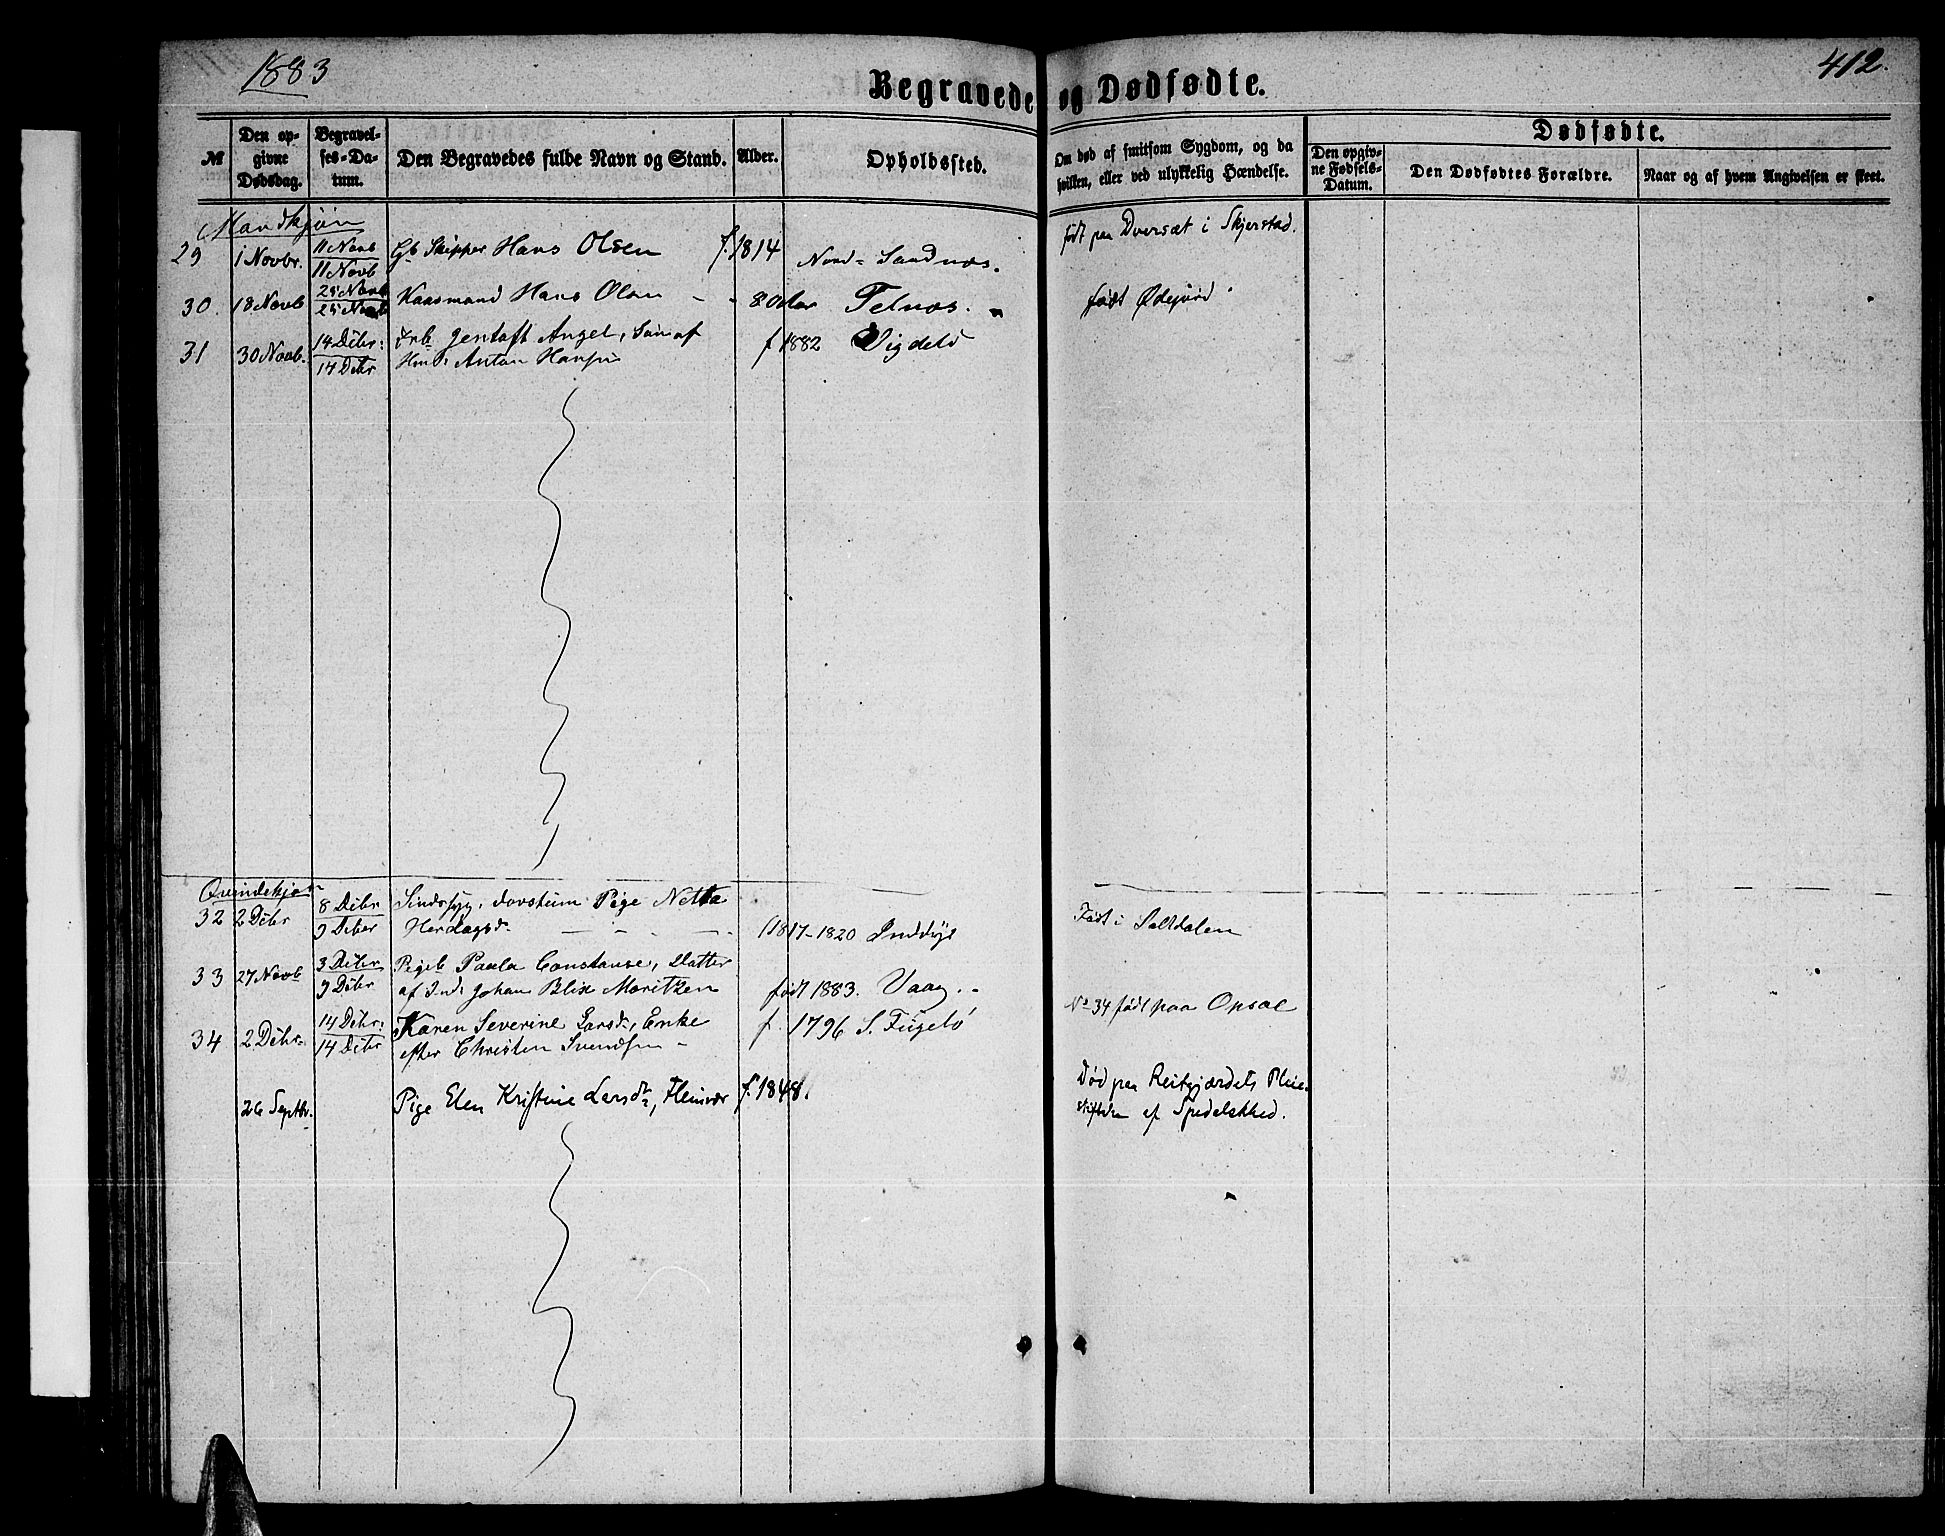 1883
412.
Begravede og Dødfødte.
№
Den opgivne Dødsdag.
Begravelses-Datum.
Den Begravedes fulde Navn og Stand.
Alder.
Opholdssted.
Om død af smitsom Sygdom, og da hvilken, eller ved ulykkelig Hændelse.
Dødfødte.
Den opgivne Fødsels-Datum.
Den Dødfødtes Forældre.
Naar og af hvem Angivelsen er skeet.
Mandkjøn
29 1 Novbr. 11 Novb 11 Novb Gb Skipper Hans Olsen f. 1814 Nord-Sandnæs. født paa Dversæt i Skjerstad.
30. 18 Novb 25 Novb 25 Novb Kaarmand Hans Olsen 80 Aar Telnæs. født
31 30 Novb. 14 Debr: 14 Debr Jentoft Angel, Søn af
Anton Hansen f 1882 Vigdeld
Qvindekjøn
32 2 Debr 8 Debr 9 Deber Sindssyg, døvstum Pige Netta
Herdagsd. 1817-1820 Inddyr Født i Saltdalen
33 27 Novb 3 Debr 9 Debr Pigeb Paula Constanse, Datter
af Ind: Johan Blix Moritzen født 1883. Vaag.
34 2 Debr. 14 Debr: 14 Debr Karen Severine Larsd., Enke
efter Christen Svendsen f. 1796 S. Fugelø No 34 født paa Opsal
26 Septbr. Pige Elen Kristine Larsdr, Fleinvær f. 1848. Død paa Reitgjærdets Pleie-
stiftelse af Spedalskhed.